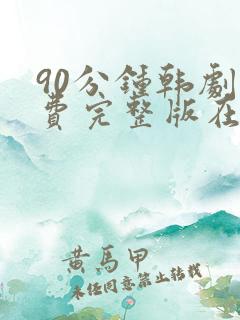 90分鍾韩劇
費完整版在
黄馬甲
未经同意禁止转载